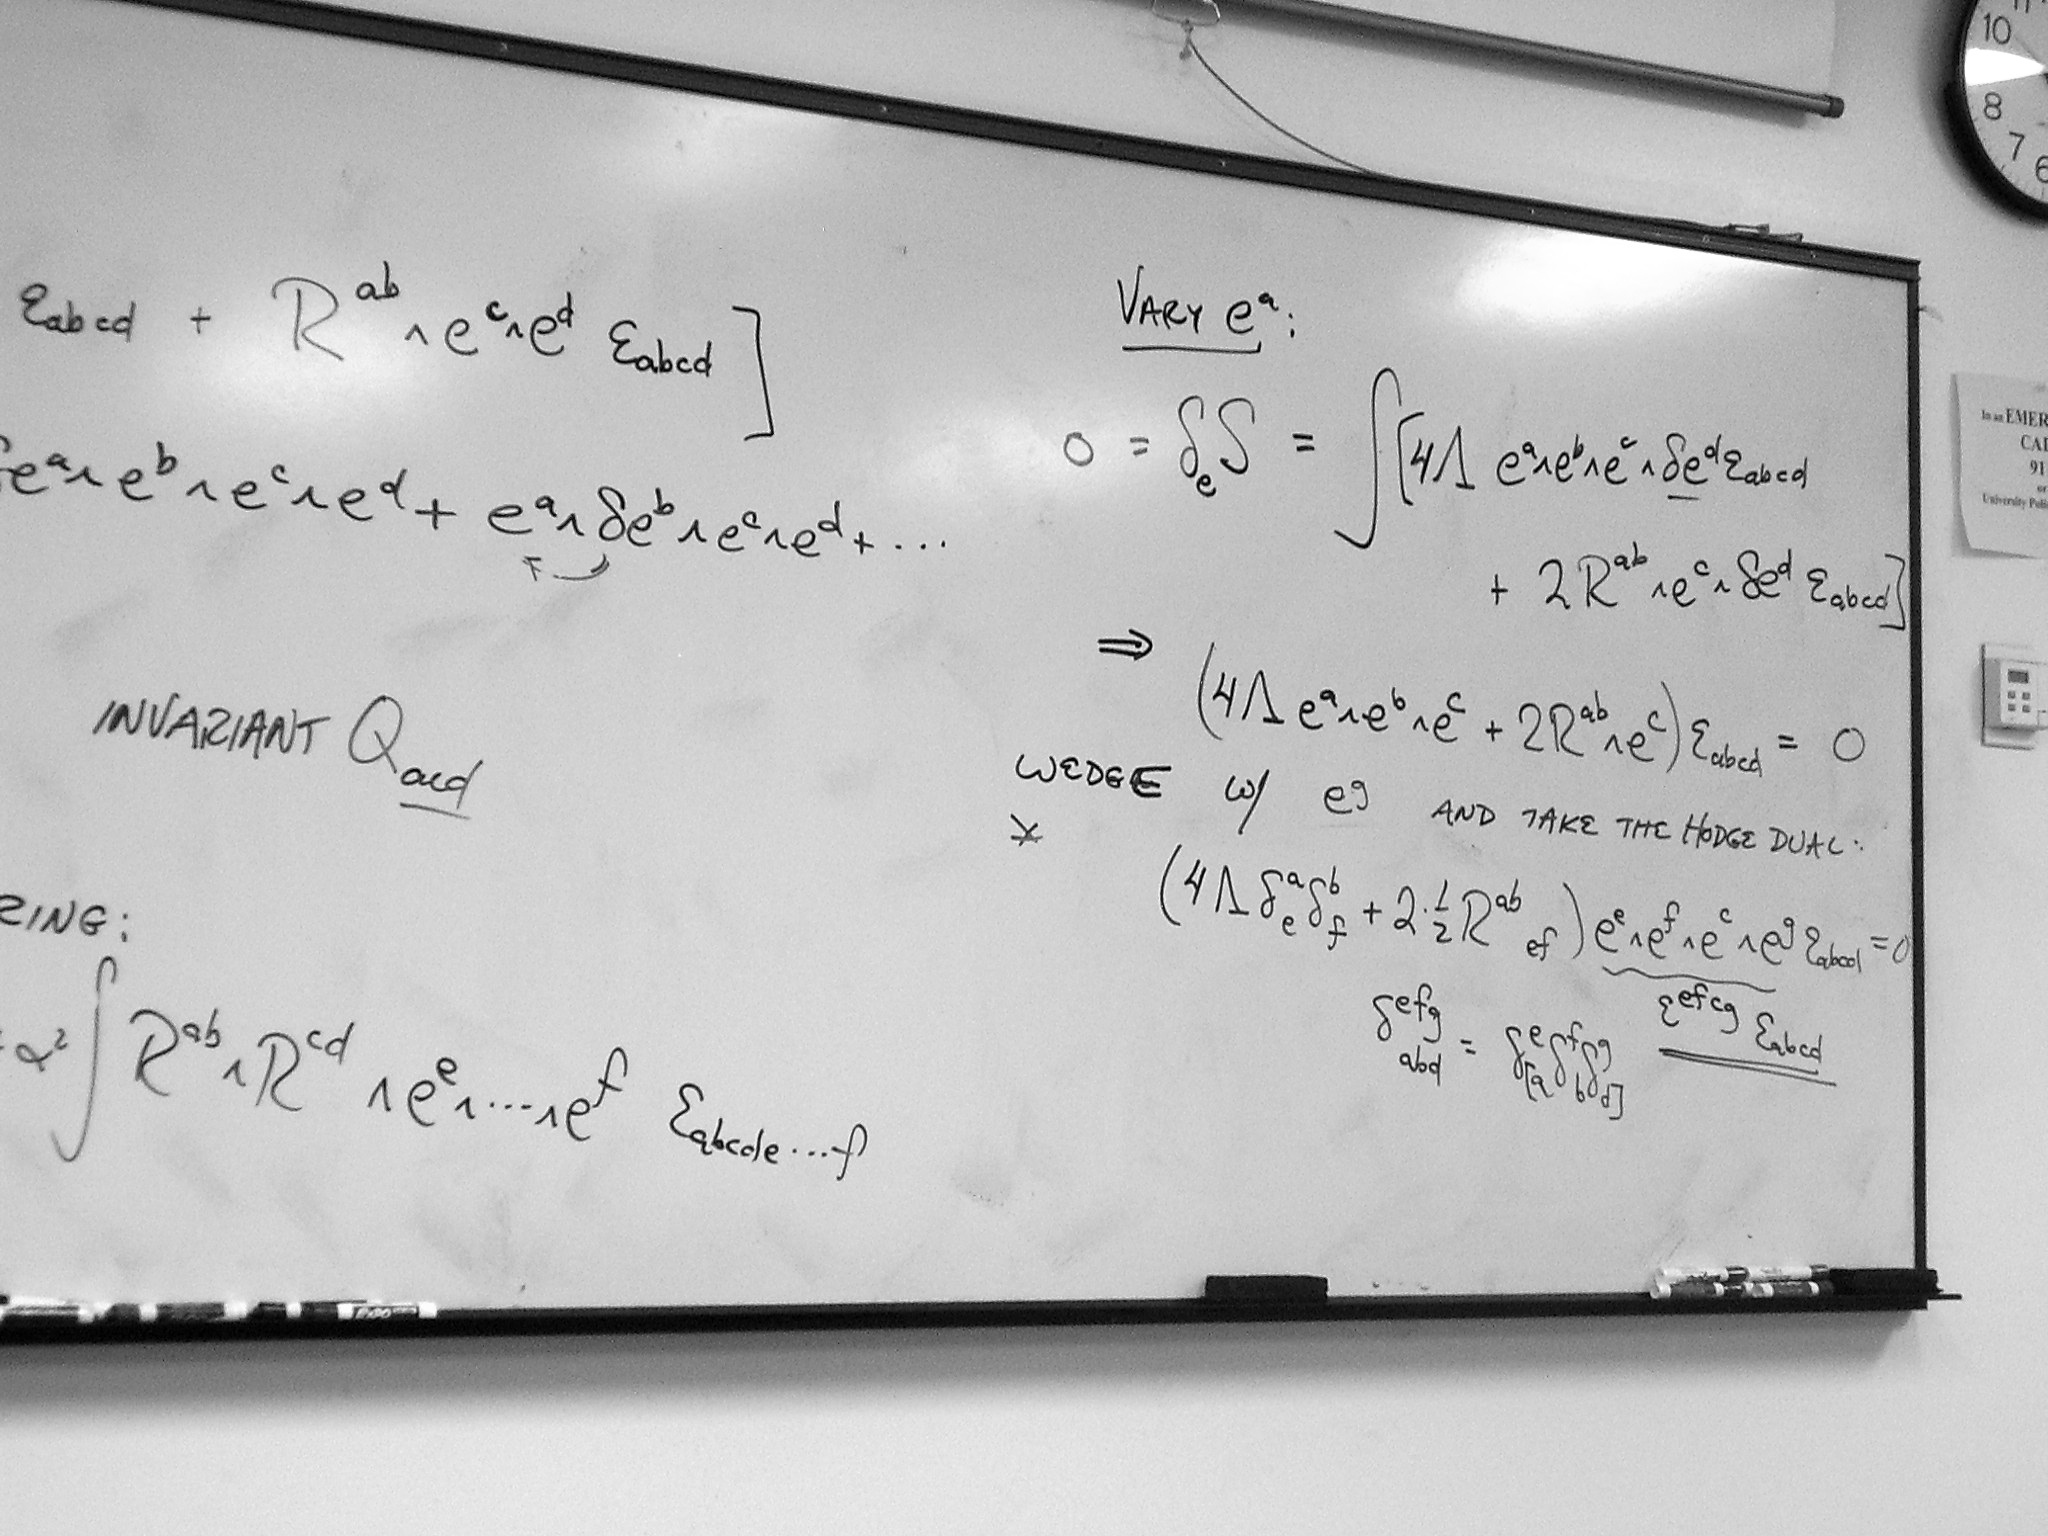 εabcd + R^ab ∧ e^c ∧ e^d εabcd ]
δe^a ∧ e^b ∧ e^c ∧ e^d + e^a ∧ δe^b ∧ e^c ∧ e^d + ...
INVARIANT Q_acd
RING:
α² ∫ R^ab ∧ R^cd ∧ e^e ∧ ... ∧ e^f ε_abcde...f
VARY e^a:
0 = δ_e S = ∫ [4Λ e^a ∧ e^b ∧ e^c ∧ δe^d ε_abcd
+ 2R^ab ∧ e^c ∧ δe^d ε_abcd]
⇒ (4Λ e^a ∧ e^b ∧ e^c + 2R^ab ∧ e^c) ε_abcd = 0
WEDGE W/ e^g AND TAKE THE HODGE DUAL:
* (4Λ δ^a_e δ^b_f + 2·½ R^ab_ef) e^e ∧ e^f ∧ e^c ∧ e^g ε_abcd = 0
ε^efcg ε_abcd
δ^efg_abd = δ^e_[a δ^f_b δ^g_d]
10
8
7
6
In an EMER
CA
91
or
University Poli